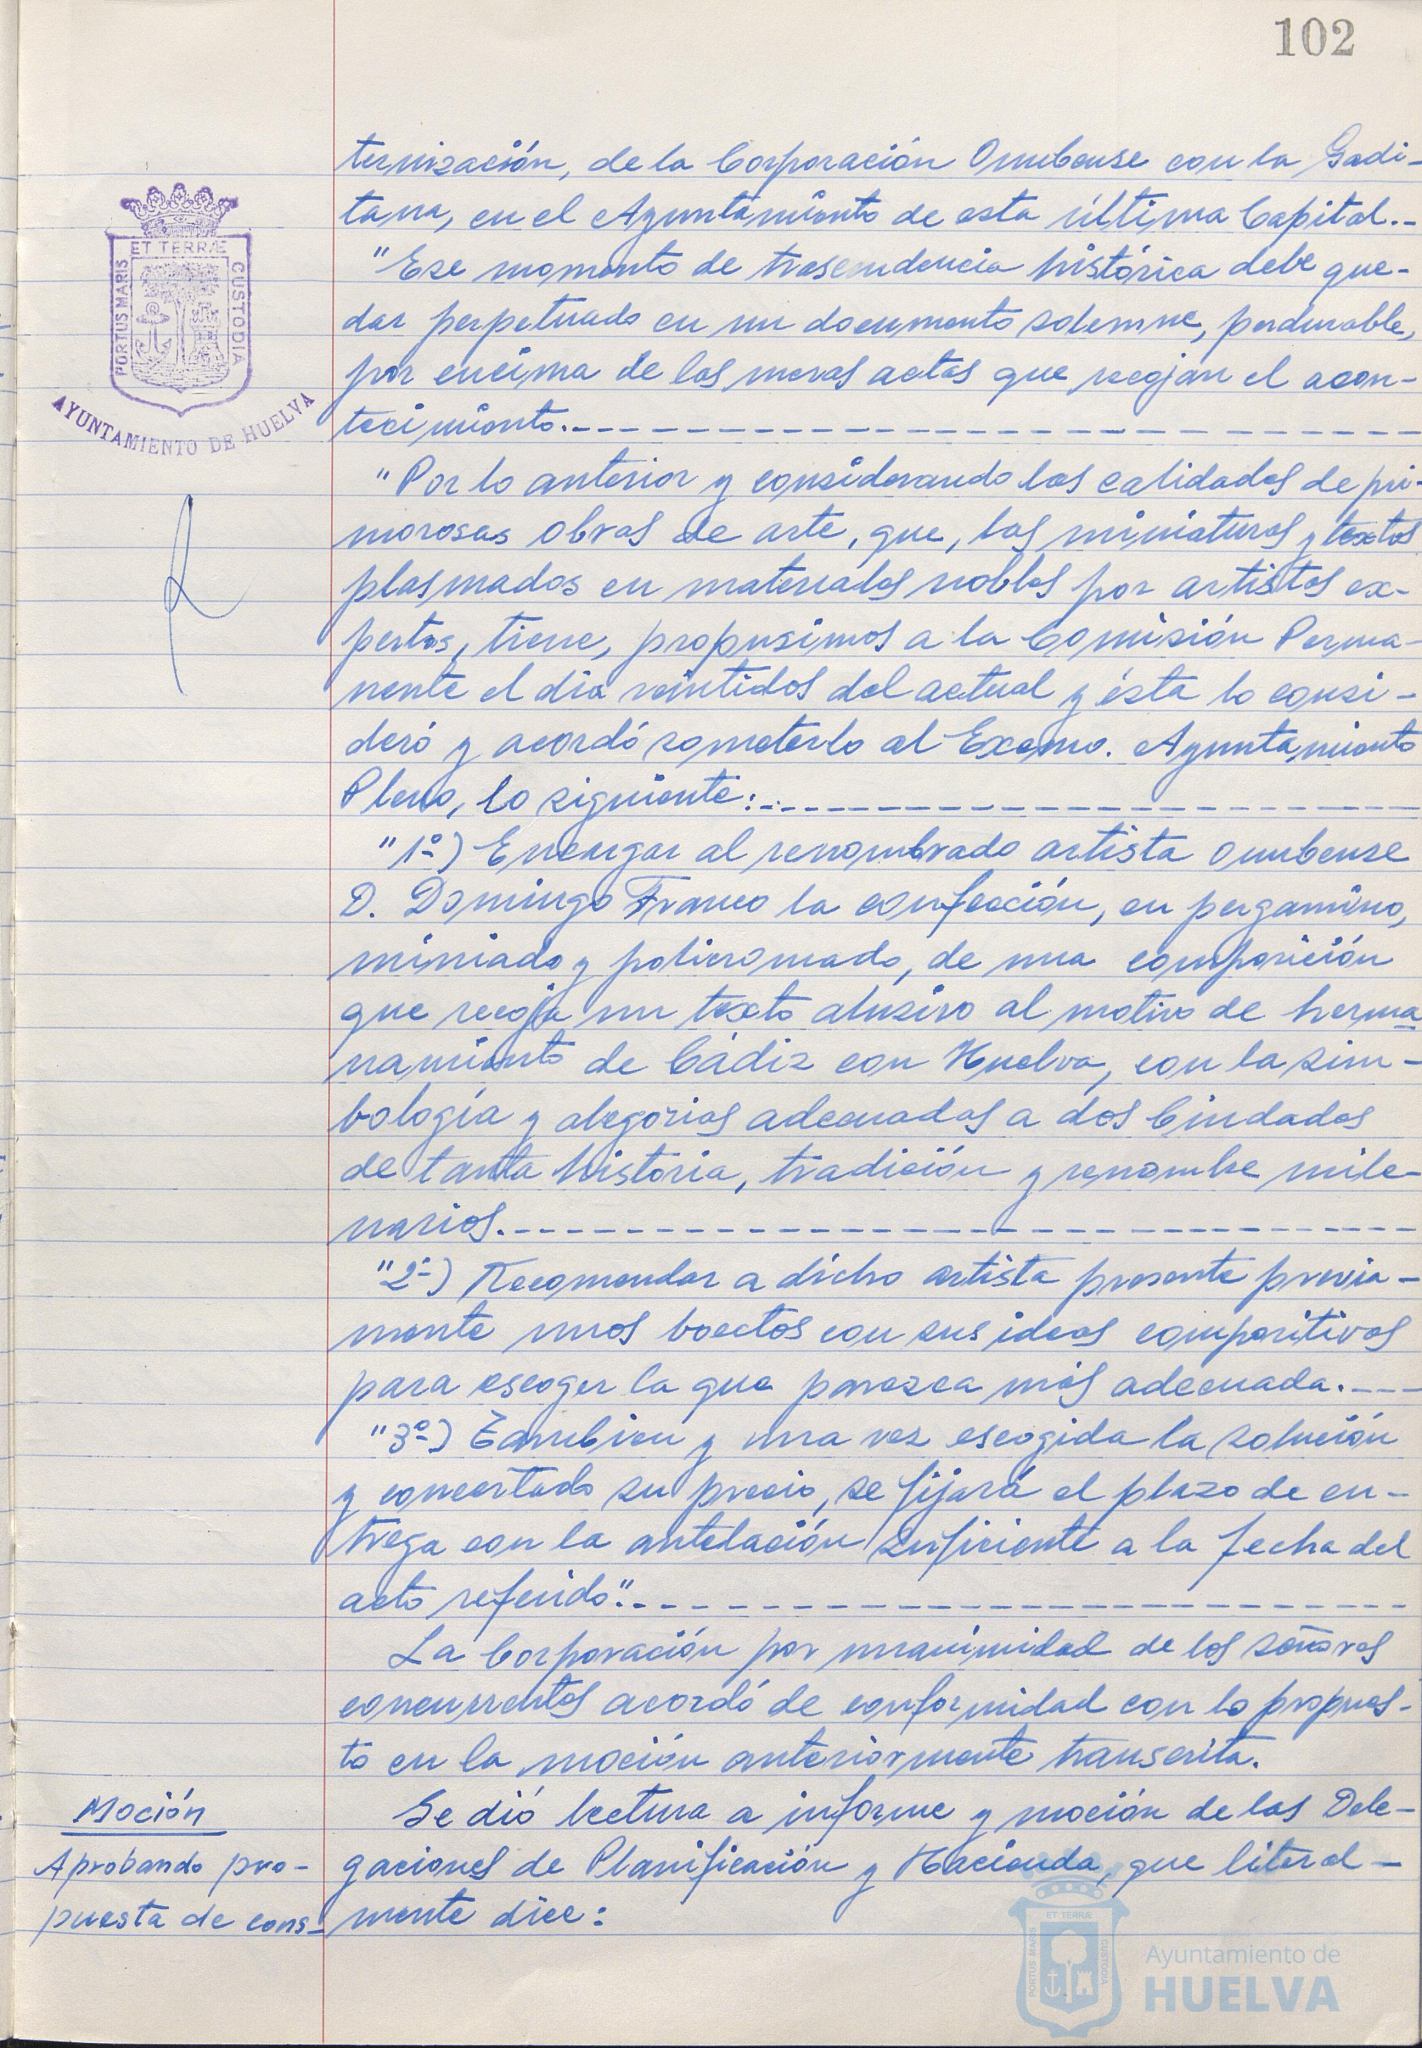 102
ternización, de la Corporación Onubense con la Gadi-
tana, en el Ayuntamiento de esta última Capital.-
"Ese momento de trascendencia histórica debe que-
dar perpetuado en un documento solemne, perdurable,
por encima de las meras actas que recojan el acon-
tecimiento.
"Por lo anterior y considerando las calidades de pri-
morosas obras de arte, que, las miniaturas y textos
plasmados en materiales nobles por artistas ex-
pertos, tiene, propusimos a la Comisión Perma-
nente el día veintidos del actual y ésta lo consi-
deró y acordó someterlo al Excmo. Ayuntamiento
Pleno, lo siguiente:
"1º-) Encargar al renombrado artista onubense
D. Domingo Franco la confección, en pergamino,
miniado y policromado, de una composición
que recoja un texto alusivo al motivo de herma
namiento de Cádiz con Huelva, con la sim-
bología y alegorias adecuadas a dos Ciudades
de tanta historia, tradición y renombre mile-
narios.
"2º-) Recomendar a dicho artista presente previa-
mente unos bocetos con sus ideas compositivas
para escoger la que parezca más adecuada.
"3º-) Tambien y una vez escogida la solución
y concertado su precio, se fijará el plazo de en-
trega con la antelación suficiente a la fecha del
acto referido".
La Corporación por unanimidad de los señores
concurrentes acordó de conformidad con lo propues-
to en la moción anteriormente transcrita.
Se dió lectura a informe y moción de las Dele-
gaciones de Planificación y Hacienda, que literal-
mente dice:
Moción
Aprobando pro-
puesta de cons-
PORTUS MARIS
ET TERRÆ
CUSTODIA
AYUNTAMIENTO DE HUELVA
PORTUS MARIS
ET TERRÆ
CUSTODIA
Ayuntamiento de
HUELVA